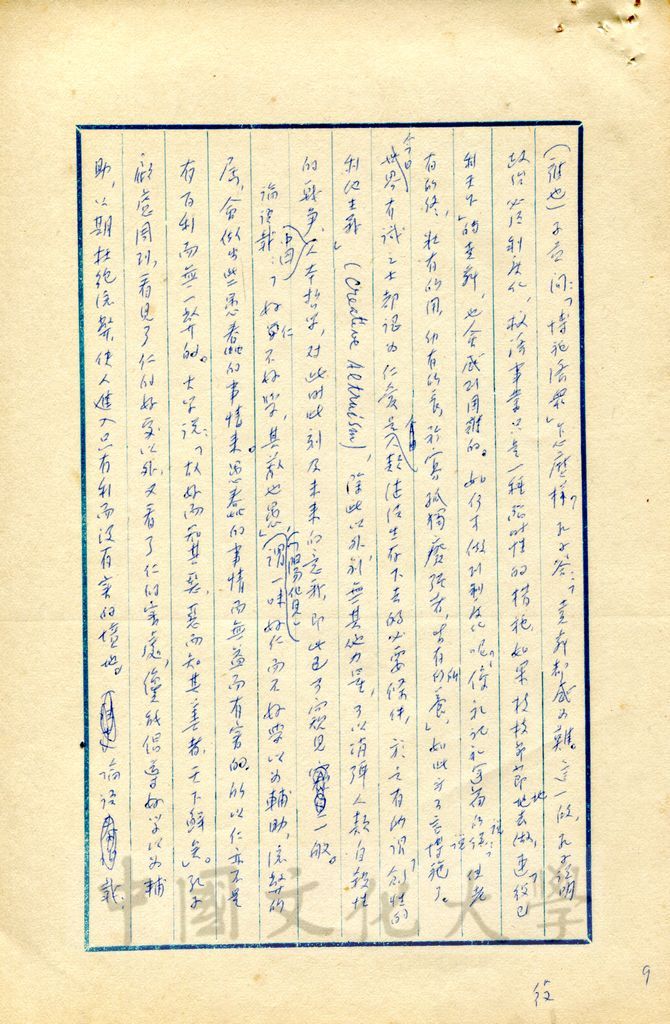 (雍也)子貢問:「博施濟眾」怎麼樣?孔子答:「堯舜都感為難。」這一段,孔子說明
政治必須制度化,救濟事業只是一種臨時性的措施,如果枝枝節節地去做,連
的「堯舜,也會感到困難的。如何才做到制度化呢?像禮記禮運篇所說:「使老
有所終,壯有所用,幼有所長,矜寡孤獨廢疾者,皆有所養」,如此方可言博施了。
今日世界有識之士都認為仁愛是人類連續生存下去的必需條件,於是有所謂「創造性的
利他主義」(Creative Altruism),除此以外,別無其他力量,可以消弭人類自殺性
的戰爭,中國人本哲學,對此時此刻及未來的意義,即此已可窺見一般。
論語載:「好仁不好學,其蔽也愚」(陽貨),謂一味好仁而不好學以為輔助,流弊所
屆,會做出些愚蠢的事情來,愚蠢的事情而無益而有害的。所以仁亦不是
有百利而無一弊的。大學說:「故好而知其惡,惡而知其美者,天下鮮矣。」孔子
顧慮周到,看見了仁的好處以外,又看了仁的害處,僅能倡導好學以為輔
助,以期杜絕流弊,使人進入只有利而沒有害的境地。論語載:
中國文化大學
9